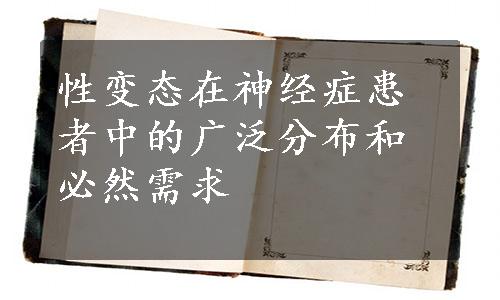 性变态在神经症患
者中的广泛分布和
必然需求